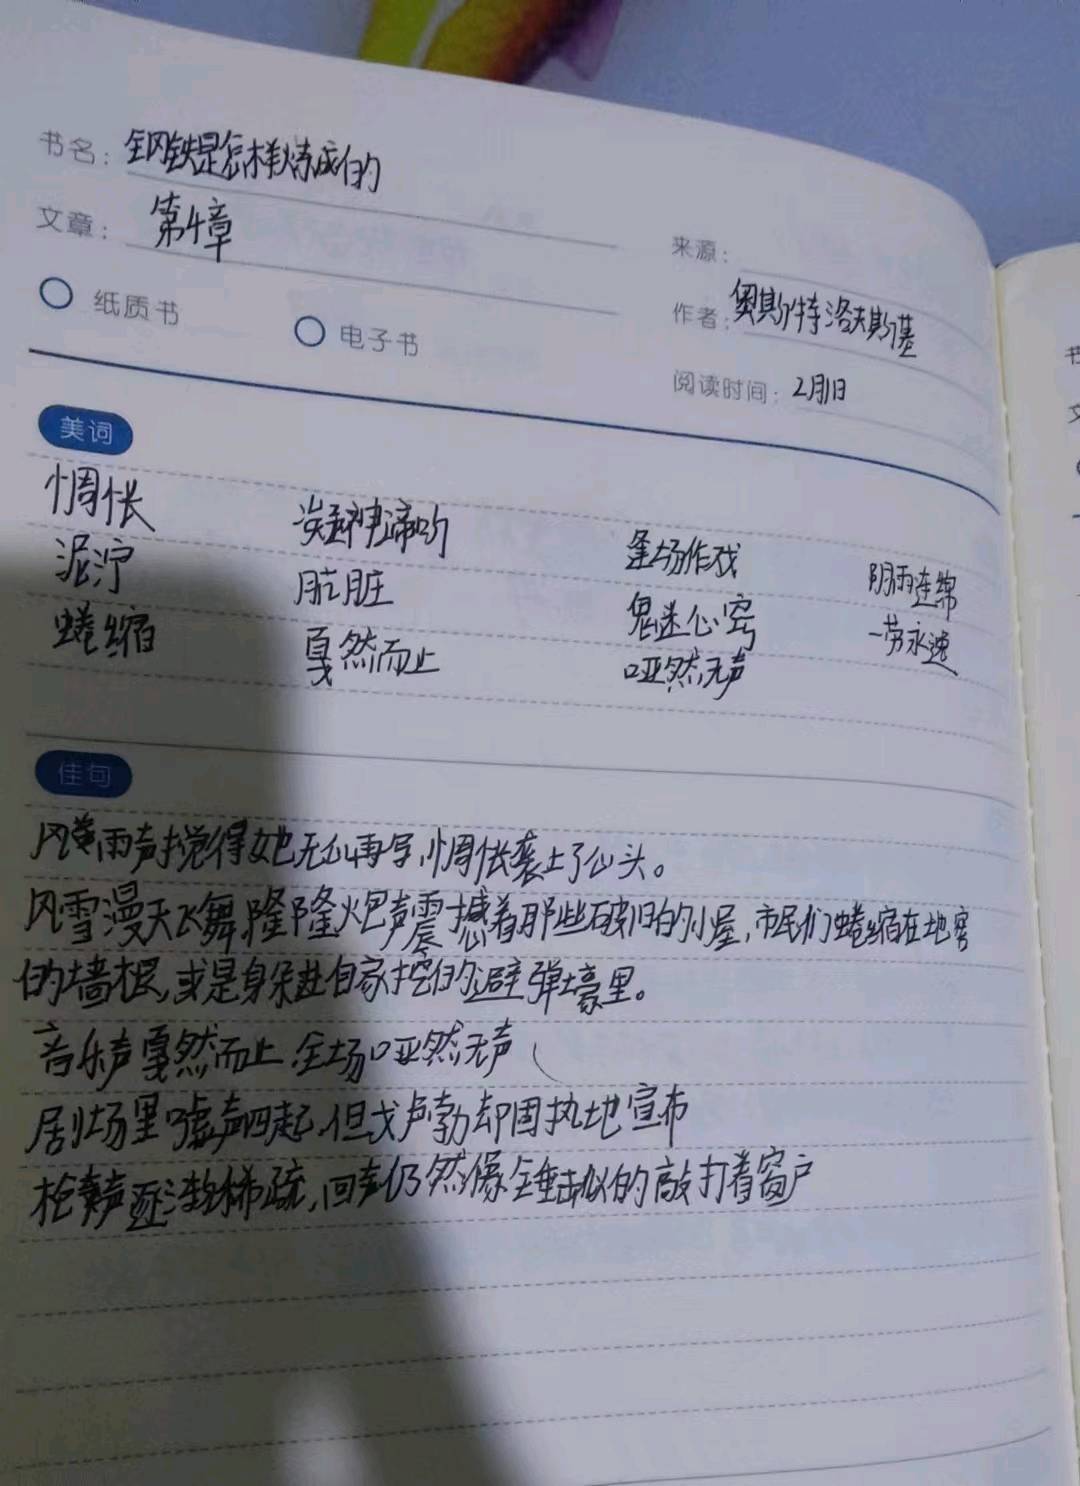 书名：钢铁是怎样炼成的
文章：第4章
来源：
纸质书
电子书
作者：奥斯特洛夫斯基
阅读时间：2月1日
美词
惆怅 炎神谛听 逢场作戏 阴雨连绵
泥泞 肮脏 鬼迷心窍 一劳永逸
蜷缩 戛然而止 哑然无声
佳句
雨声 觉得她无心再写，惆怅袭上了心头。
风雪漫天飞舞，隆隆炮声震撼着那些破旧的小屋，市民们蜷缩在地窖
的墙根，或是身躲进自家挖的避弹壕里。
音乐声戛然而止，全场哑然无声
剧场里嘘声四起，但戈卢勃却固执地宣布
枪声逐渐稀疏，回声仍然像锤击似的敲打着窗户
书
文